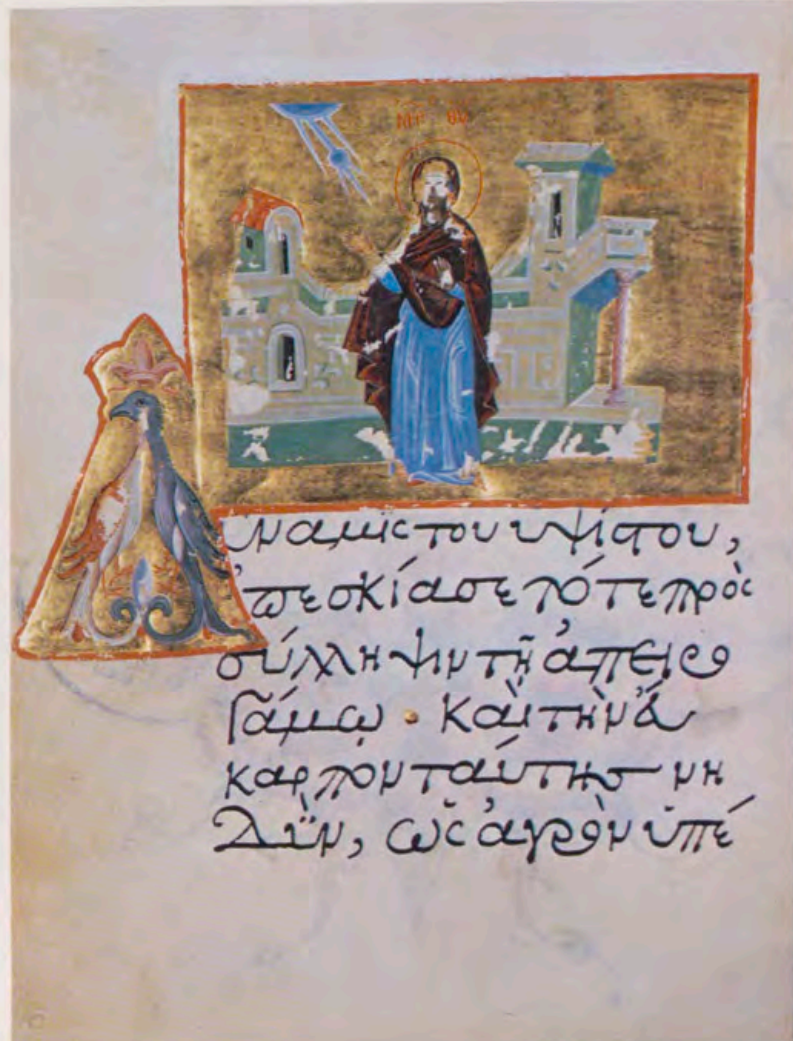 ΜΗΡ ΘΥ
Δύναμις του υψίστου,
ἐπεσκίασε τότε πρὸς
σύλληψιν τῆ ἀπειρο
γάμῳ · Καὶ τὴν ἄ
καρπον ταύτης νη
δϋν, ὡς ἀγρὸν ὑπέ